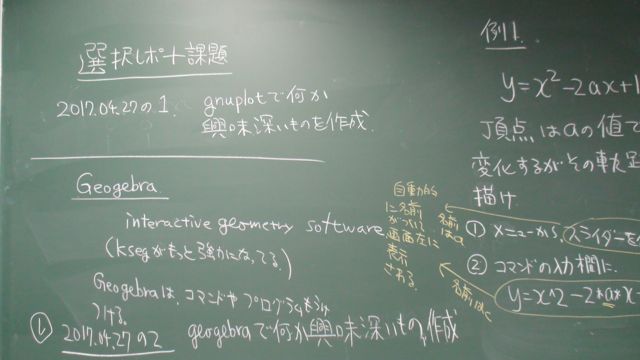 選択レポート課題
2017.04.27の1. gnuplotで何か
興味深いものを作成.
Geogebra
interactive geometry software
(ksegがもっと強力になってる.)
Geogebraは、コマンドやプログラムもうけ
つける.
① 2017.04.27の2 geogebraで何か興味深いものを作成
自動的
に名前
がついて
画面左に
表示
される
名前
はa
名前はc
例1.
y=x²-2ax+1
頂点はaの値で
変化するがその軌跡
描け.
① メニューから、スライダーを
② コマンドの入力欄に.
y=x^2-2*a*x